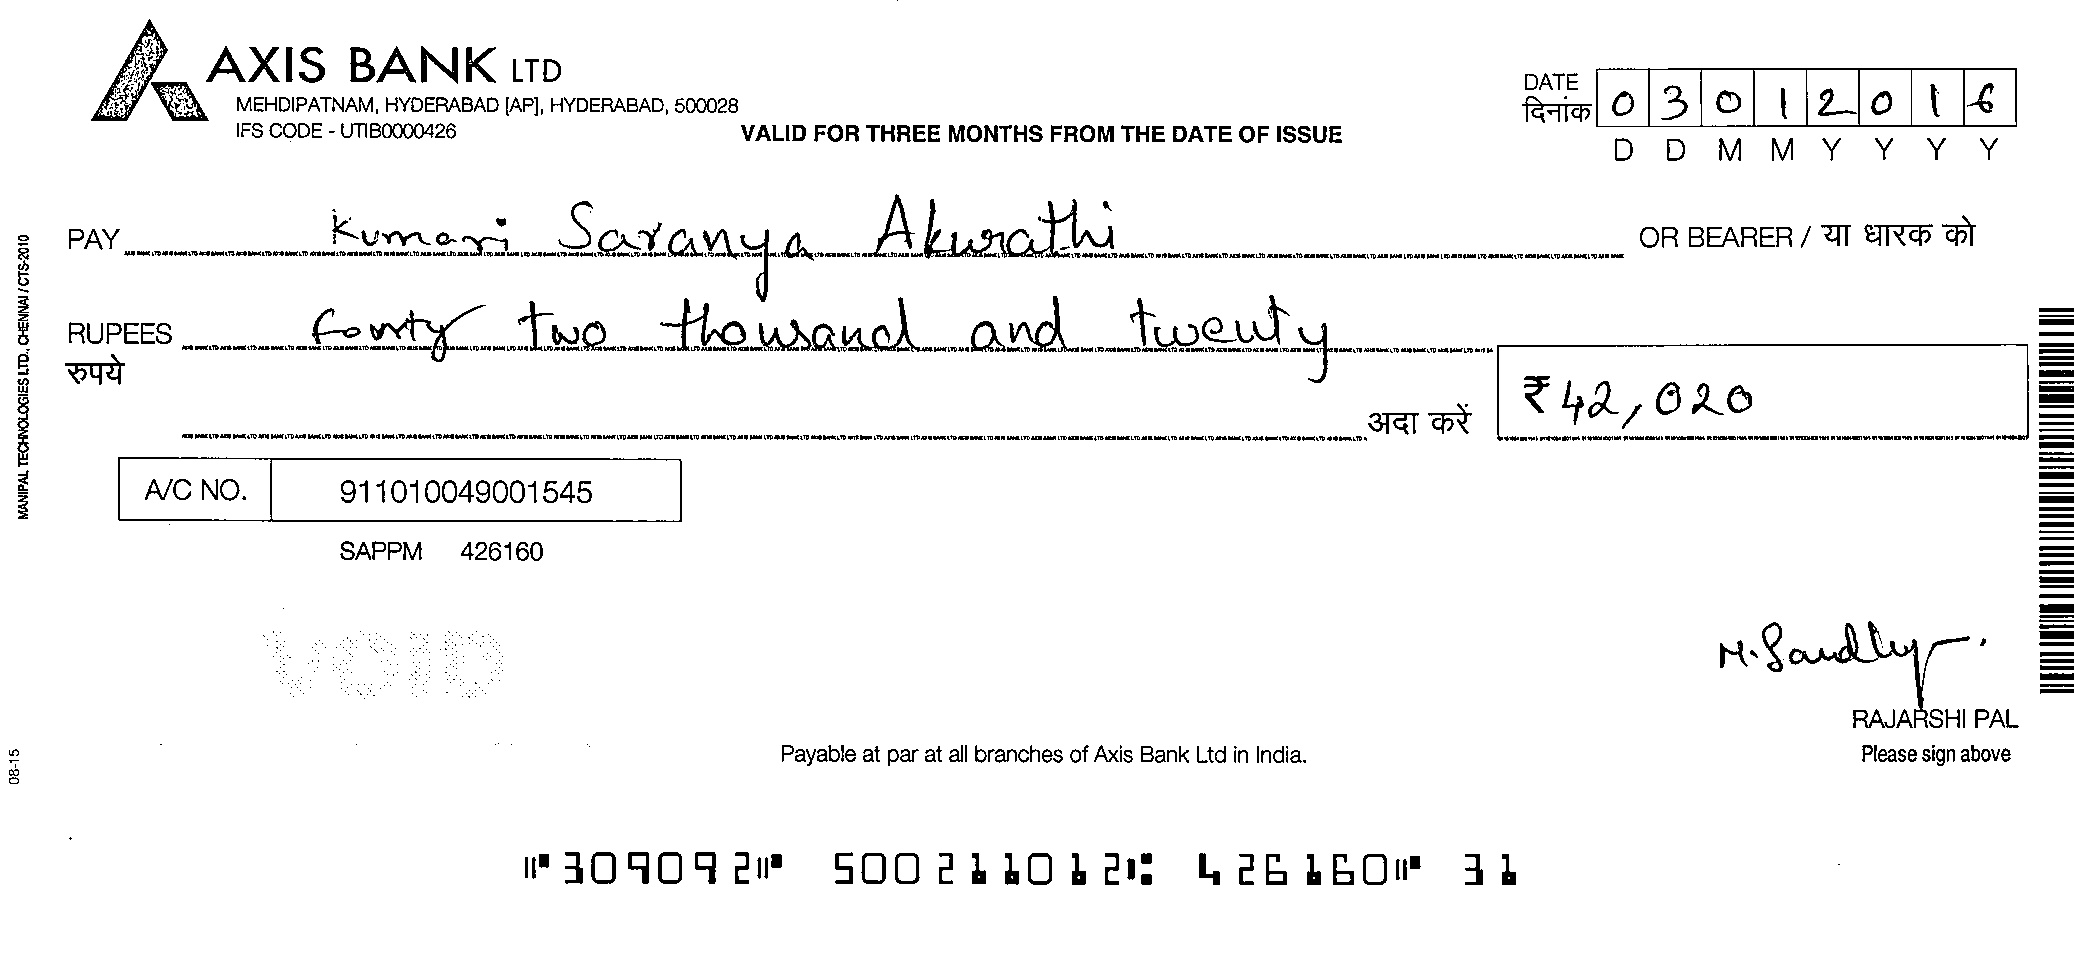 AXIS BANK LTD
MEHDIPATNAM, HYDERABAD [AP], HYDERABAD, 500028
IFS CODE - UTIB0000426
VALID FOR THREE MONTHS FROM THE DATE OF ISSUE
DATE
दिनांक 0 3 0 1 2 0 1 6
D D M M Y Y Y Y
PAY Kumari Saranya Akurathi OR BEARER / या धारक को
RUPEES fourty two thousand and twenty
रुपये
अदा करें ₹ 42,020
A/C NO. 911010049001545
SAPPM 426160
VOID
M. Sandhy
RAJARSHI PAL
Please sign above
Payable at par at all branches of Axis Bank Ltd in India.
MANIPAL TECHNOLOGIES LTD., CHENNAI / CTS-2010
08-15
⑈309092⑈ 500211012⑆ 426160⑈ 31